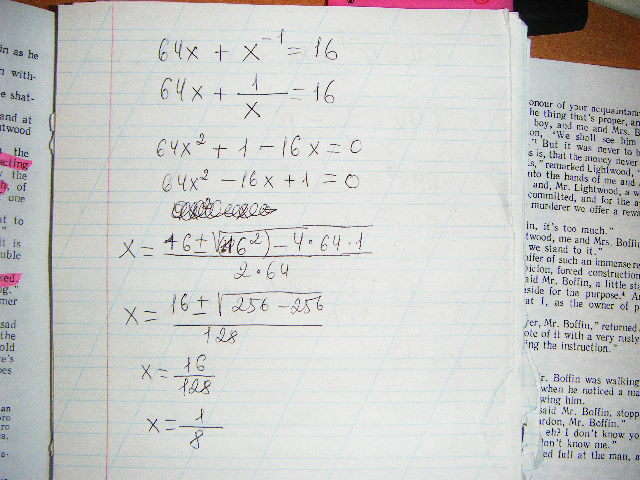 64x + x^-1 = 16
64x + 1/x = 16
64x² + 1 - 16x = 0
64x² - 16x + 1 = 0
x = 16 ± √(16²) - 4 · 64 · 1 / 2 · 64
x = 16 ± √256 - 256 / 128
x = 16/128
x = 1/8
in as he
with-
e shat-
and at
the
acting
the
of
one
at to
it is
uble
ked.
mer
sad
the
old
e's
an
onour of your acquaintance
he thing that's proper, an
boy, and me and Mrs. B
on, "We shall see him
" But it was never to b
s is, that the money never
s," remarked Lightwood, "
nto the hands of me and
and, Mr. Lightwood, a w
committed, and for the a
murderer we offer a rewa
in, it's too much."
twood, me and Mrs. Boffi
we stand to it."
uffer of such an immense re
picion, forced construction
aid Mr. Boffin, a little sta
side for the purpose.
at I, as the owner of p
yer, Mr. Boffin," returned
ote of it with a very rusty
ing the instruction."
r. Boffin was walking
when he noticed a ma
wing him.
said Mr. Boffin, stopp
ardon, Mr. Boffin."
eh? I don't know yo
don't know me."
ed full at the man, a